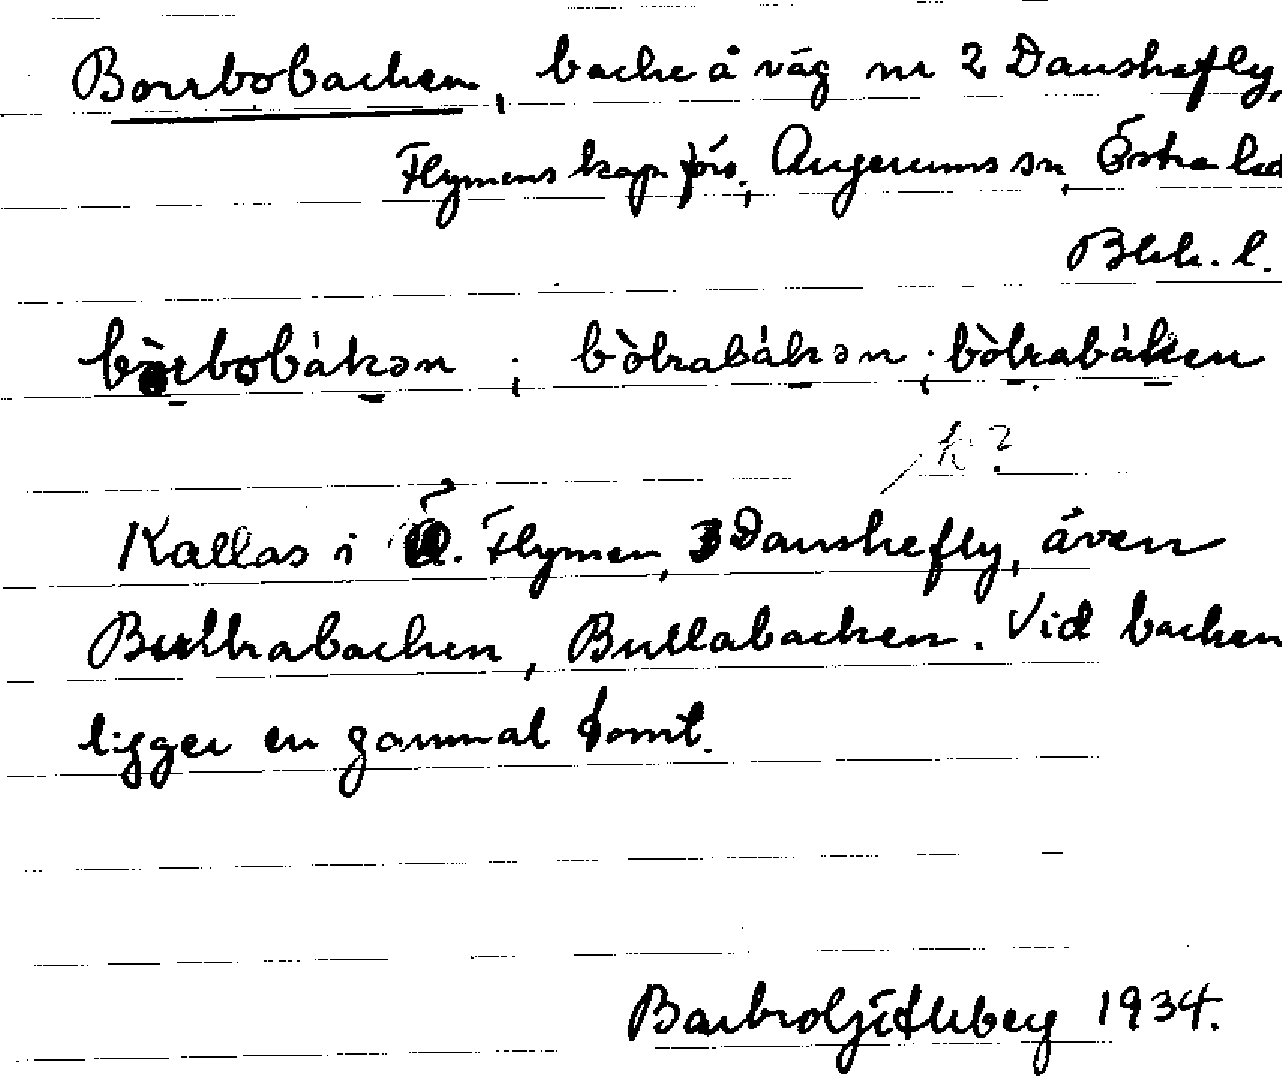 Borrbobacken, backe å väg nr 2 Danskefly,
Flymens kap förs., Augerums sn, Östra hd
Blek. l.
bòrbobákən ; bòlrabákən ; bòlrabáken
k?
Kallas i Ö. Flymen, 3 Danskefly, även
Bullrabacken, Bullabacken. Vid backen
ligger en gammal tomt.
1934.